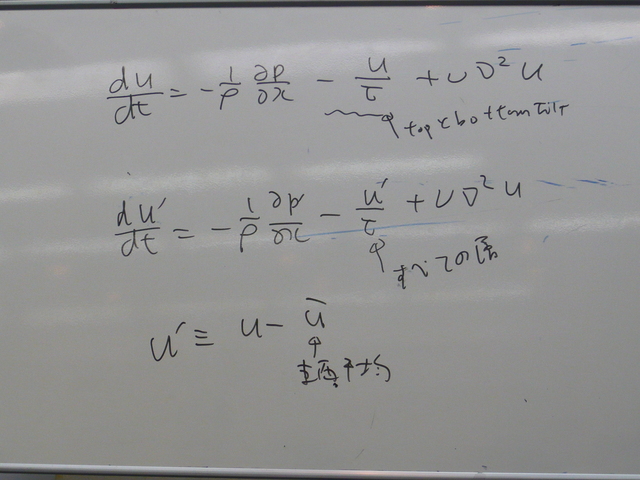 du/dt = -1/ρ ∂p/∂x - u/τ + ν∇²u
topとbottomだけ
du'/dt = -1/ρ ∂p'/∂x - u'/τ + ν∇²u
すべての層
u' ≡ u - ū
平均